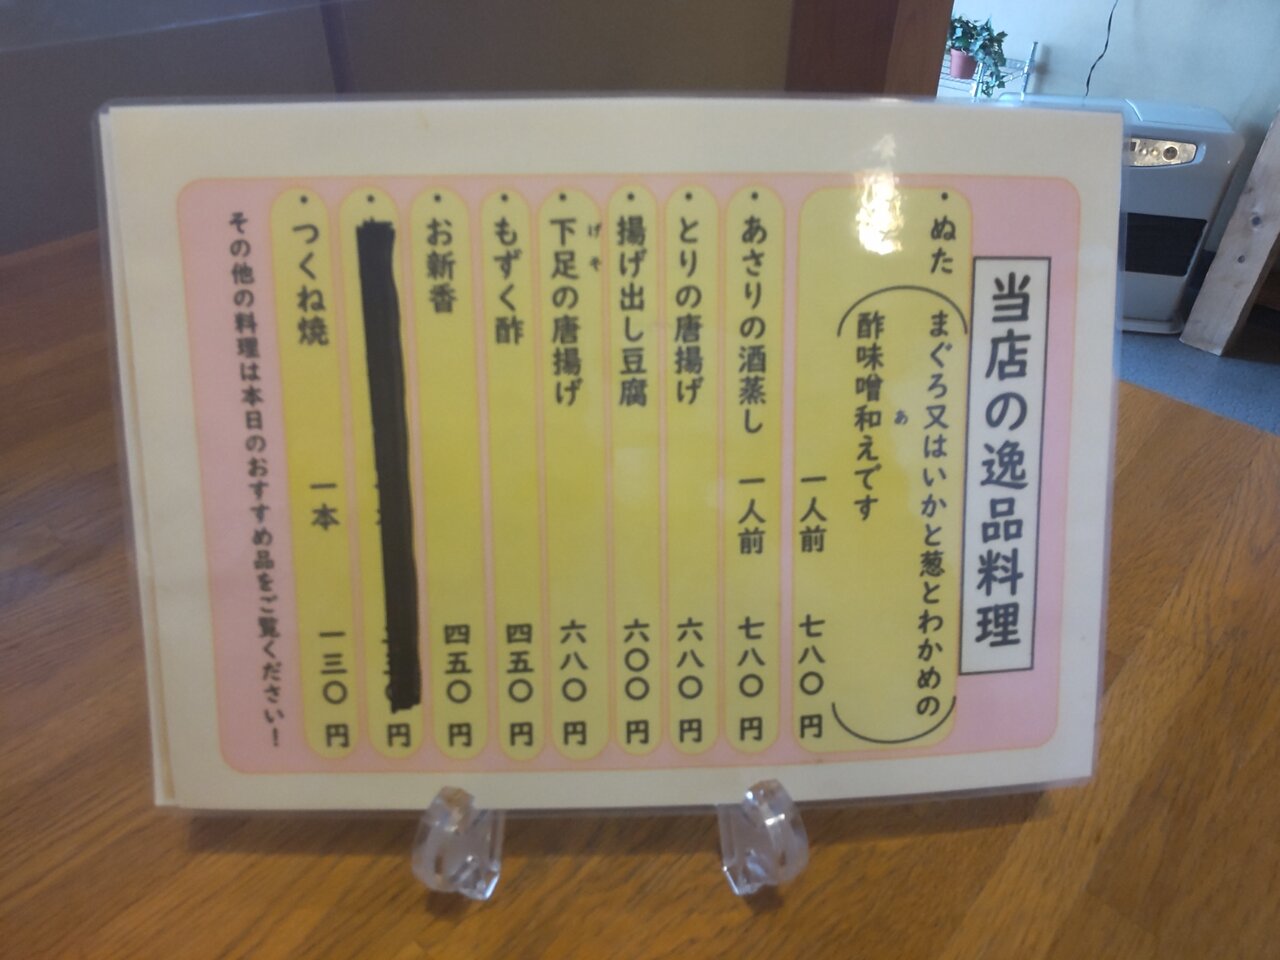 当店の逸品料理
・ぬた(まぐろ又はいかと葱とわかめの
酢味噌和えです)
あ
一人前 七八〇円
・あさりの酒蒸し 一人前 七八〇円
・とりの唐揚げ 六八〇円
・揚げ出し豆腐 六〇〇円
げそ
・下足の唐揚げ 六八〇円
・もずく酢 四五〇円
・お新香 四五〇円
・ 円
・つくね焼 一本 一三〇円
その他の料理は本日のおすすめ品をご覧ください!